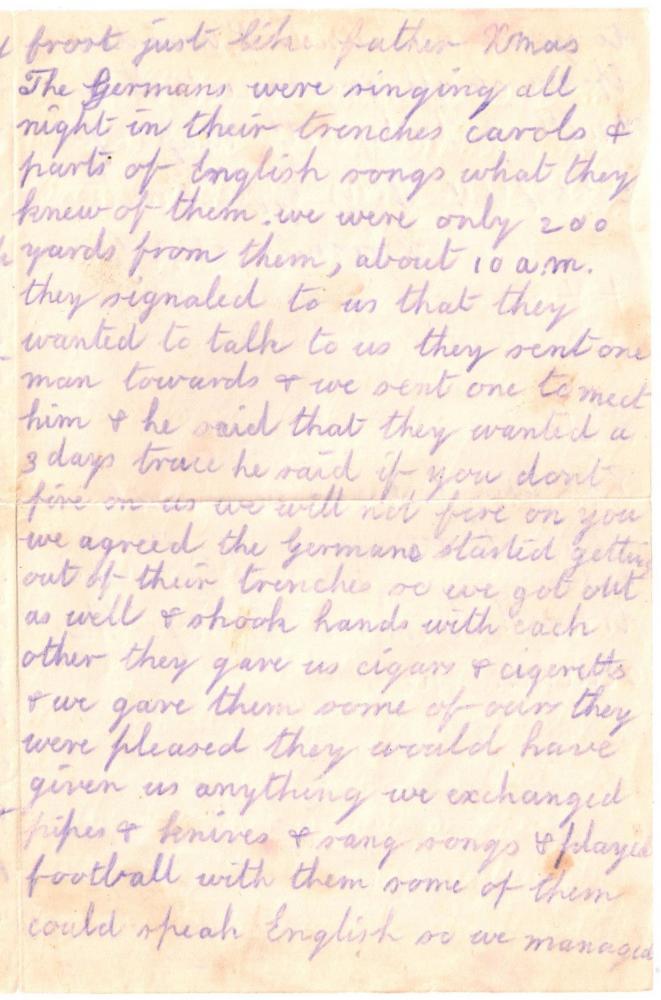 frost just like father Xmas
The Germans were singing all
night in their trenches carols &
parts of English songs what they
knew of them. we were only 200
yards from them, about 10 a.m.
they signaled to us that they
wanted to talk to us they sent one
man towards & we sent one to meet
him & he said that they wanted a
3 days truce he said if you dont
fire on us we will not fire on you
we agreed the Germans started getting
out of their trenches so we got out
as well & shook hands with each
other they gave us cigars & cigeretts
& we gave them some of ours they
were pleased they would have
given us anything we exchanged
pipes & knives & sang songs & played
football with them some of them
could speak English so we managed